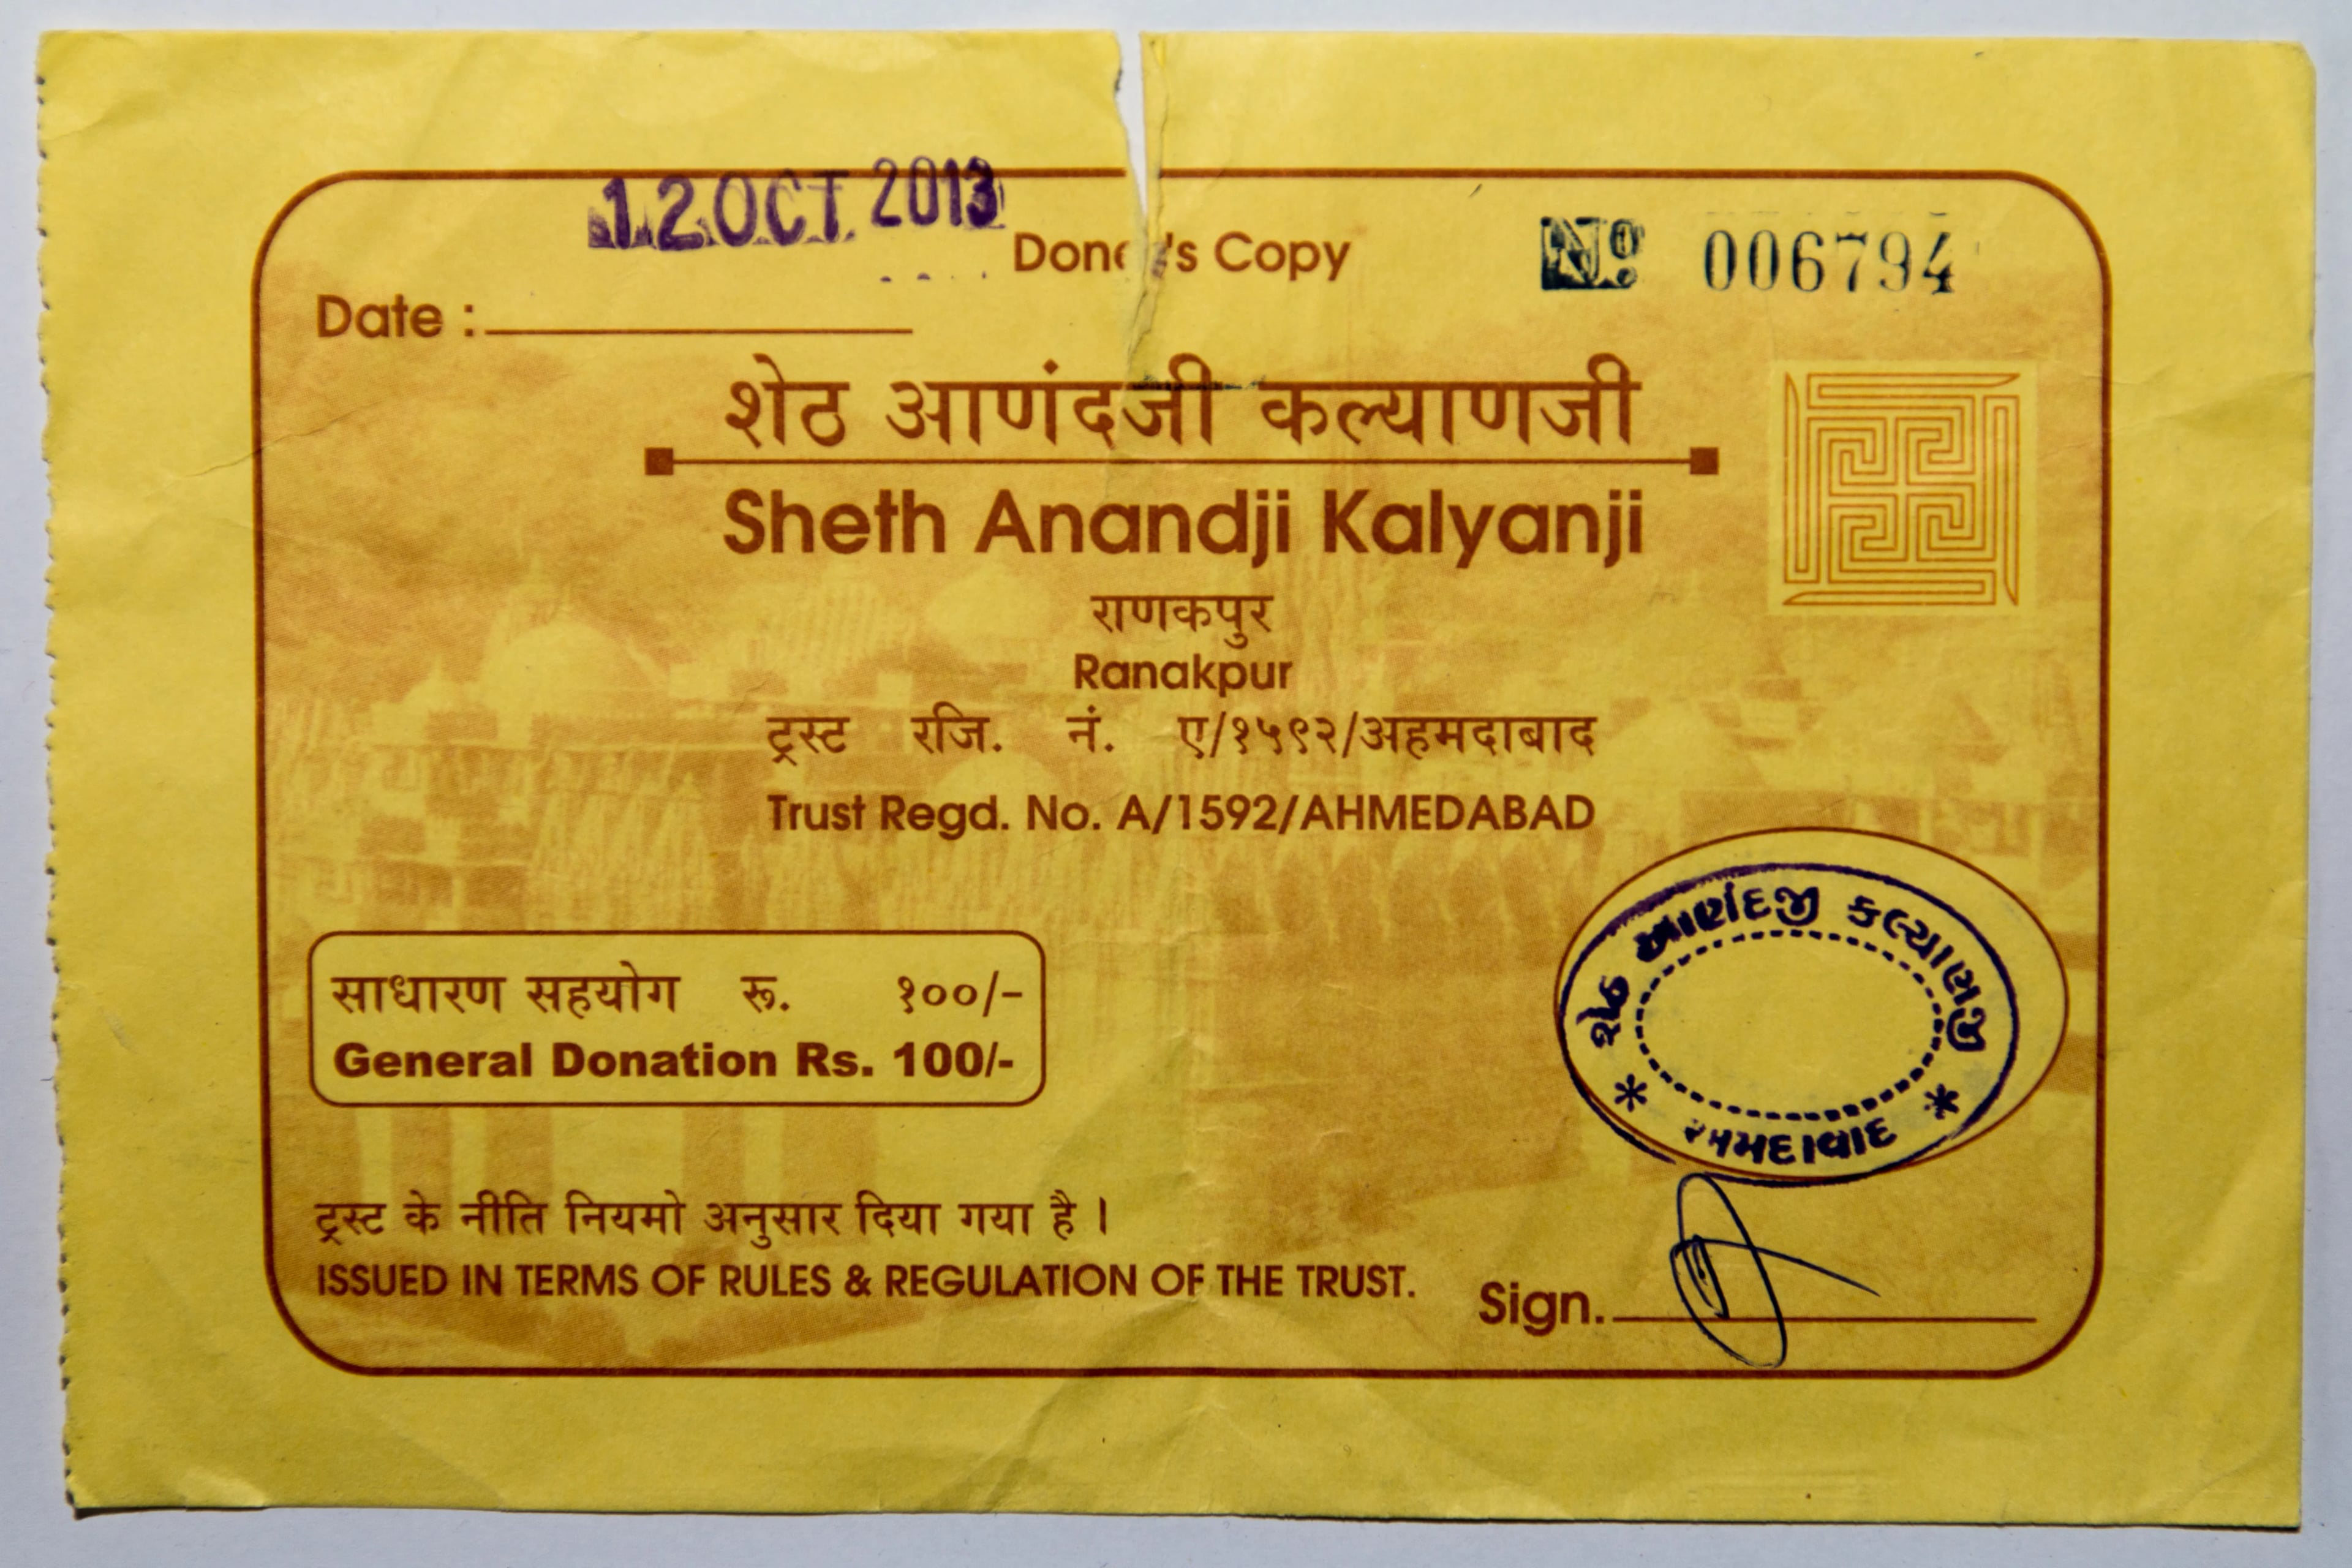 12 OCT 2013
Don 's Copy
Nº 006794
Date :
शेठ आणंदजी कल्याणजी
Sheth Anandji Kalyanji
राणकपुर
Ranakpur
ट्रस्ट रजि. नं. ए/१५९२/अहमदाबाद
Trust Regd. No. A/1592/AHMEDABAD
શેઠ આણંદજી કલ્યાણજી
* અમદાવાદ *
साधारण सहयोग रू. १००/-
General Donation Rs. 100/-
ट्रस्ट के नीति नियमो अनुसार दिया गया है ।
ISSUED IN TERMS OF RULES & REGULATION OF THE TRUST.
Sign.